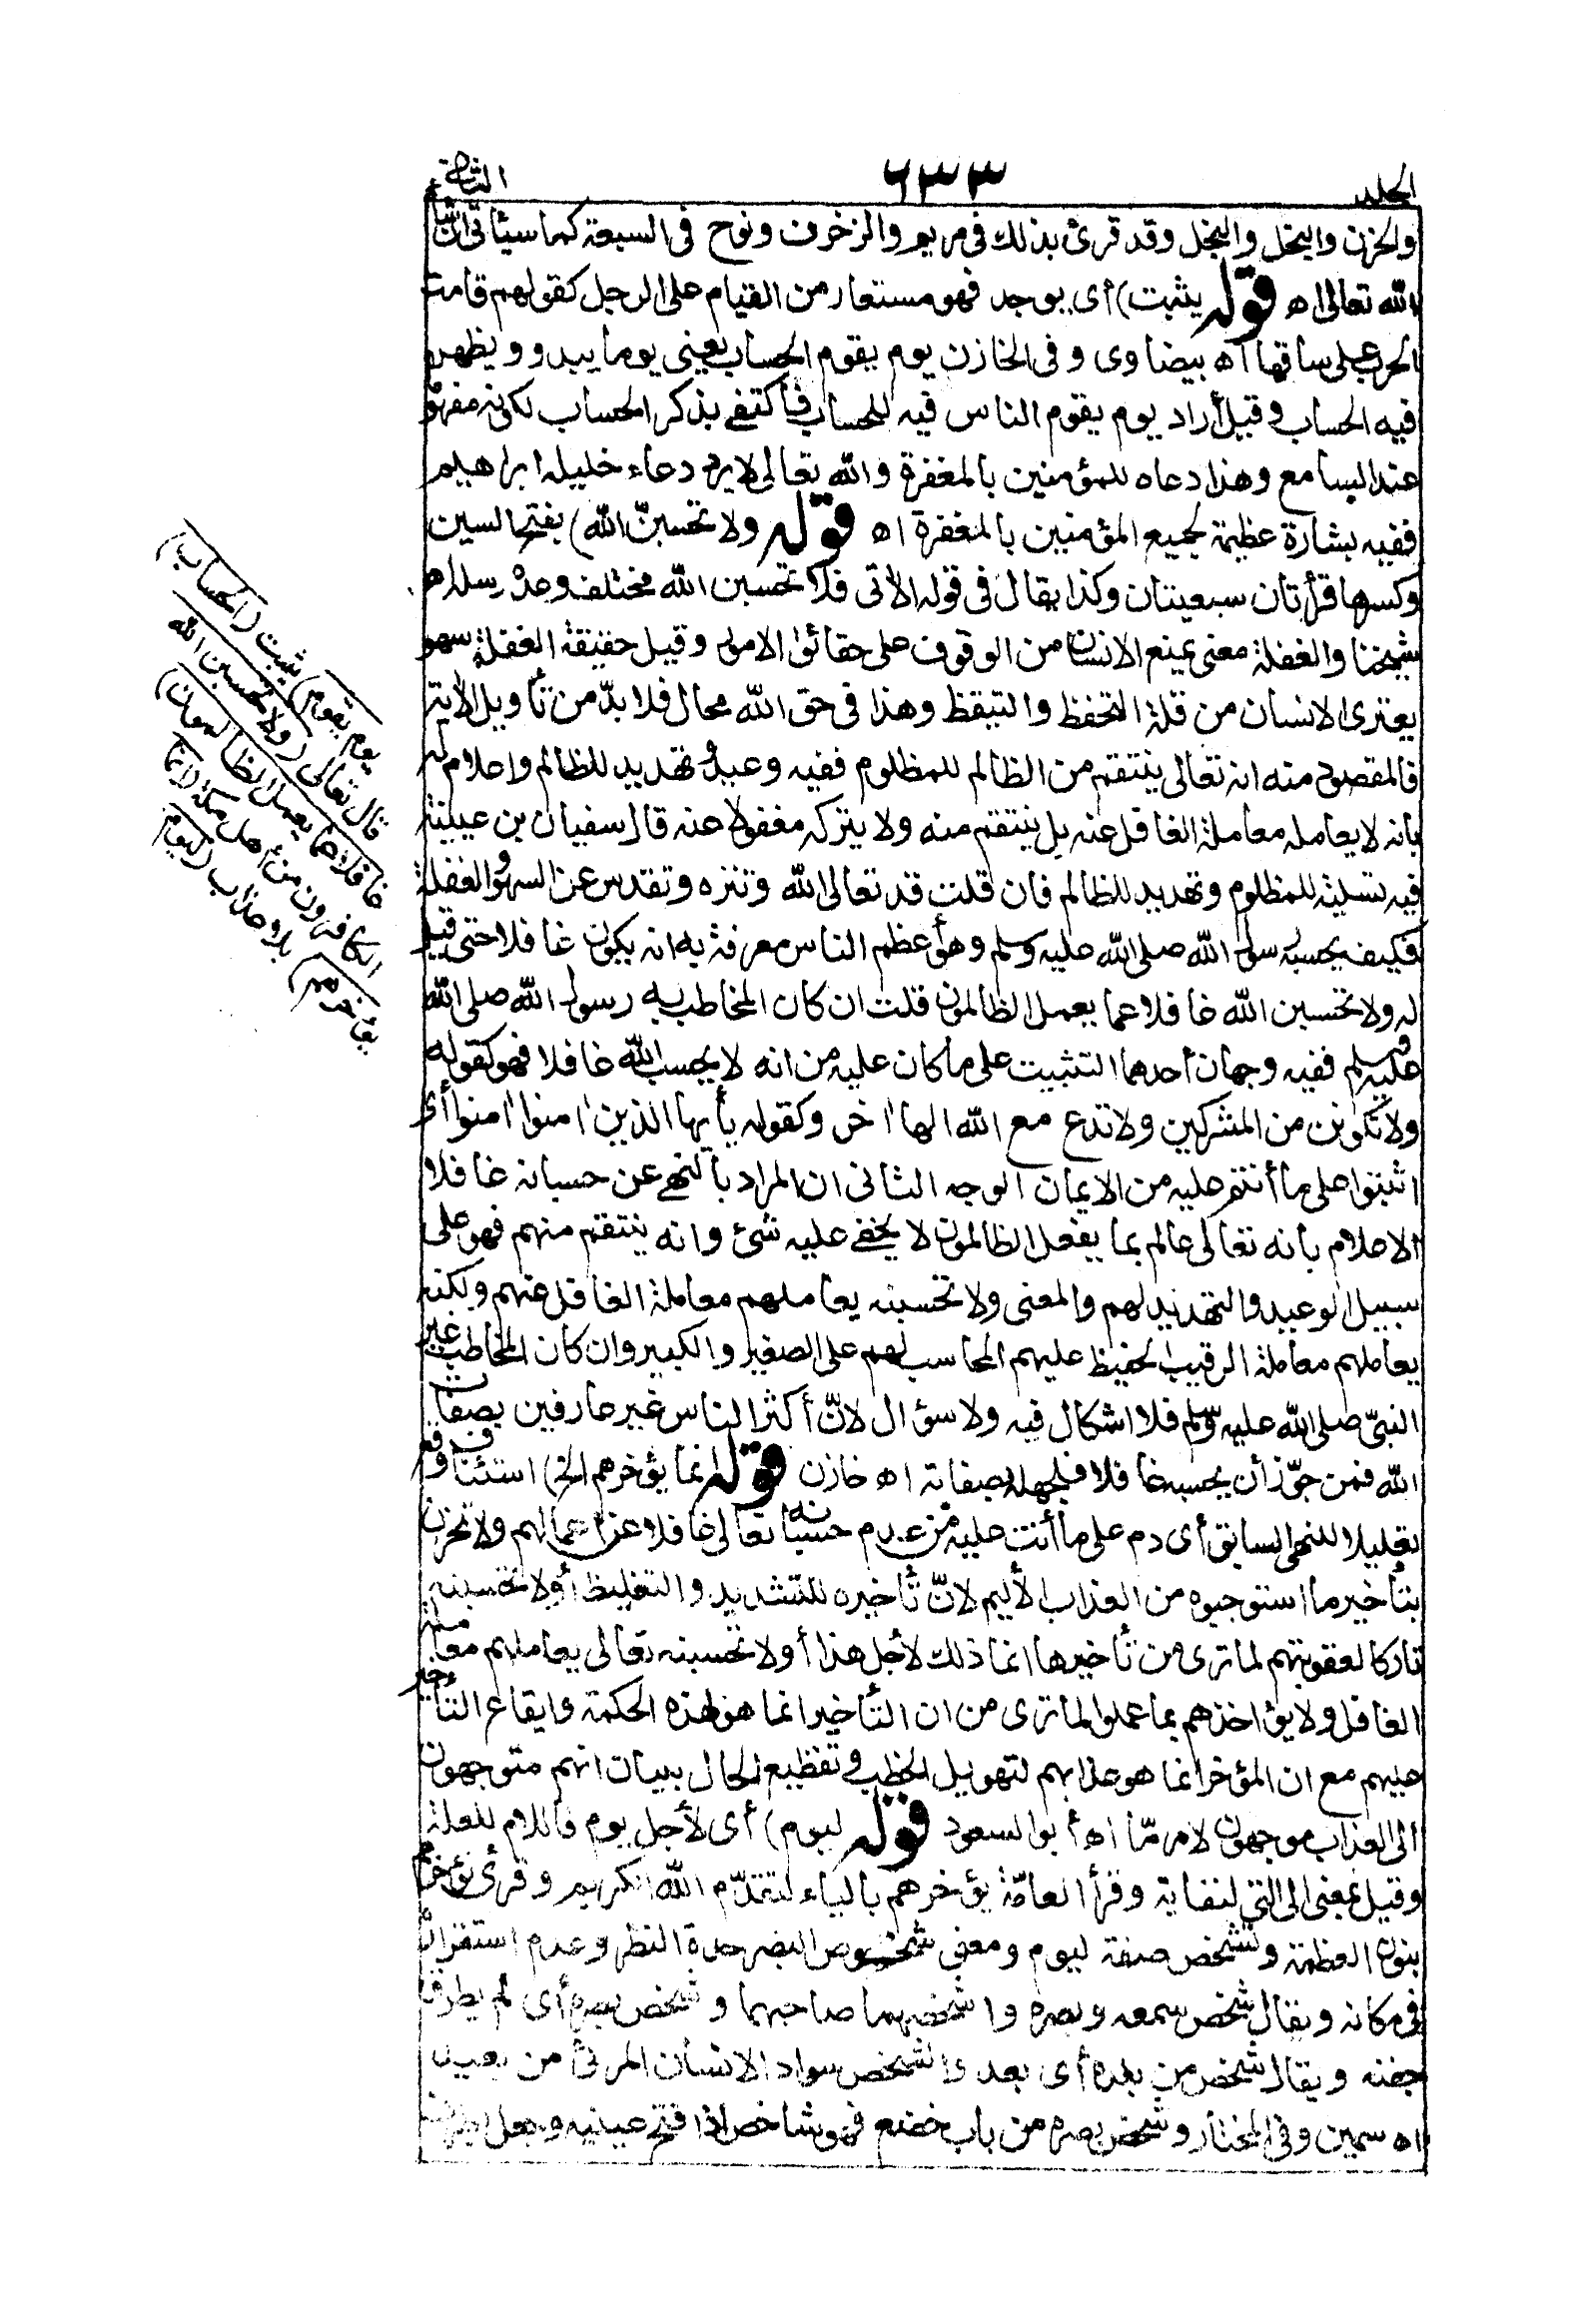 الجلد ٦٣٣ الثانى
والحزن والبخل والبخل وقد قرئ بذلك فى مريم والزخرف ونوح فى السبعة كما سيأتى ان شاء
الله تعالى اه قوله يثبت) أى يوجد فهو مستعار من القيام على الرجل كقولهم قامت
الحرب على ساقها اه بيضاوى وفى الخازن يوم يقوم الحساب يعنى يوما يبدو ويظهر
فيه الحساب وقيل أراد يوم يقوم الناس فيه للحساب فاكتفى بذكر الحساب لكونه مفهوما
عند السامع وهذا دعاء للمؤمنين بالمغفرة والله تعالى لا يرد دعاء خليله ابراهيم
ففيه بشارة عظيمة لجميع المؤمنين بالمغفرة اه قوله ولا تحسبنّ الله) بفتح السين
وكسرها قرأتان سبعيتان وكذا يقال فى قوله الآتى فلا تحسبن الله مختلف وعده رسله اه
شيخنا والغفلة معنى يمنع الانسان من الوقوف على حقائق الامور وقيل حقيقة الغفلة سهو
يعترى الانسان من قلة التحفظ والتيقظ وهذا فى حق الله محال فلا بدّ من تأويل الآية
فالمقصود منه انه تعالى ينتقم من الظالم للمظلوم ففيه وعيد وتهديد للظالم واعلام له
بانه لا يعامله معاملة الغافل عنه بل ينتقم منه ولا يتركه مغفولا عنه قال سفيان بن عيينة
فيه تسلية للمظلوم وتهديد للظالم فان قلت قد تعالى الله وتنزه وتقدس عن السهو والغفلة
فكيف يحسبه رسول الله صلى الله عليه وسلم وهو أعظم الناس معرفة به انه يكون غافلا حتى قيل
له ولا تحسبن الله غافلا عما يعمل الظالمون قلت ان كان المخاطب به رسول الله صلى الله
عليه وسلم ففيه وجهان أحدهما التثبيت على ما كان عليه من انه لا يحسب الله غافلا فهو كقوله
ولا تكونن من المشركين ولا تدع مع الله الها اخر وكقوله يأيها الذين امنوا امنوا أى
اثبتوا على ما أنتم عليه من الايمان الوجه الثانى ان المراد بالنهى عن حسبانه غافلا
الاعلام بأنه تعالى عالم بما يفعل الظالمون لا يخفى عليه شئ وانه ينتقم منهم فهو على
سبيل الوعيد والتهديد لهم والمعنى ولا تحسبنه يعاملهم معاملة الغافل عنهم ولكنه
يعاملهم معاملة الرقيب الحفيظ عليهم المحاسب لهم على الصغير والكبير وان كان المخاطب غير
النبىّ صلى الله عليه وسلم فلا اشكال فيه ولا سؤال لانّ أكثر الناس غير عارفين بصفات
الله فمن جوّز أن يحسبه غافلا فلجهله بصفاته اه خازن قوله انما يؤخرهم الخ) استئناف وقع
تعليلا للنهى السابق أى دم على ما أنت عليه من عدم حسبانه تعالى غافلا عن أعمالهم ولا تحزن
بتأخير ما استوجبوه من العذاب الأليم لانّ تأخيره للتشديد والتغليظ أو لا تحسبنه
تاركا لعقوبتهم لما ترى من تأخيرها انما ذلك لأجل هذا أو لا تحسبنه تعالى يعاملهم معاملة
الغافل ولا يؤاخذهم بما عملوا لما ترى من ان التأخير انما هو لهذه الحكمة وايقاع التأخير
عليهم مع ان المؤخر انما هو عذابهم لتهويل الخطب وتفظيع الحال ببيان انهم متوجهون
الى العذاب موجهون لامر مّا اه أبو السعود قوله ليوم) أى لأجل يوم فاللام للعلة
وقيل بمعنى الى التى للغاية وقرأ العامّة يؤخرهم بالياء لتقدّم الله الكريم وقرئ نؤخرهم
بنون العظمة وتشخص صفة ليوم ومعنى شخوص البصر حدة النظر وعدم استقراره
فى مكانه ويقال شخص سمعه وبصره واشخصهما صاحبهما وشخص بصره أى لم يطرف
جفنه ويقال شخص من بلده أى بعد والشخص سواد الانسان المرئى من بعيد
اه سمين وفى المختار وشخص بصره من باب خضع فهو شاخص اذا فتح عينيه وجعل
يوم يقوم) يثبت (الحساب)
قال تعالى (ولا تحسبن الله
غافلا عما يعمل الظالمون)
الكافرون من أهل مكة (انما
يؤخرهم) بلا عذاب (ليوم